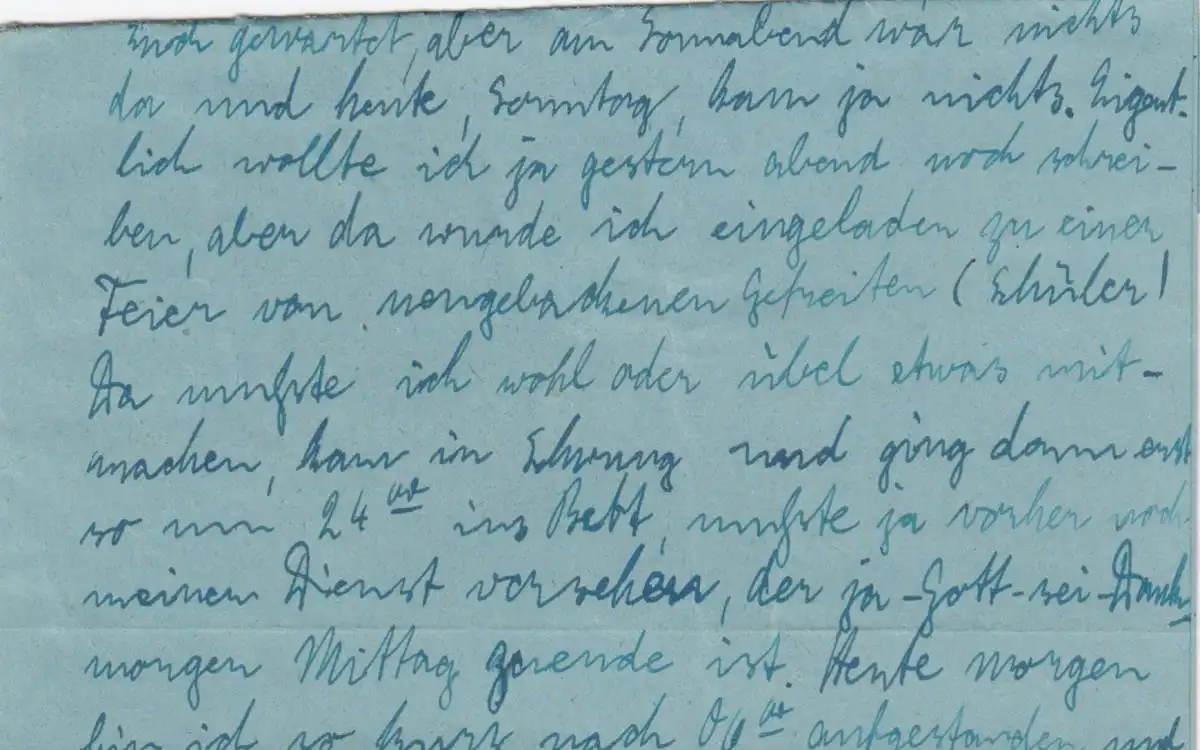 Euch gewartet, aber am Sonnabend war nichts
da und heute, Sonntag, kam ja nichts. Eigent-
lich wollte ich ja gestern abend noch schrei-
ben, aber da wurde ich eingeladen zu einer
Feier von neugebackenen Gefreiten (Schüler)
Da mußte ich wohl oder übel etwas mit-
machen, kam in Schwung und ging dann erst
so um 24 00 ins Bett, mußte ja vorher noch
meinen Dienst versehen, der ja - Gott - sei - Dank
morgen Mittag zuende ist. Heute morgen
bin ich so kurz nach 00 aufgestanden und